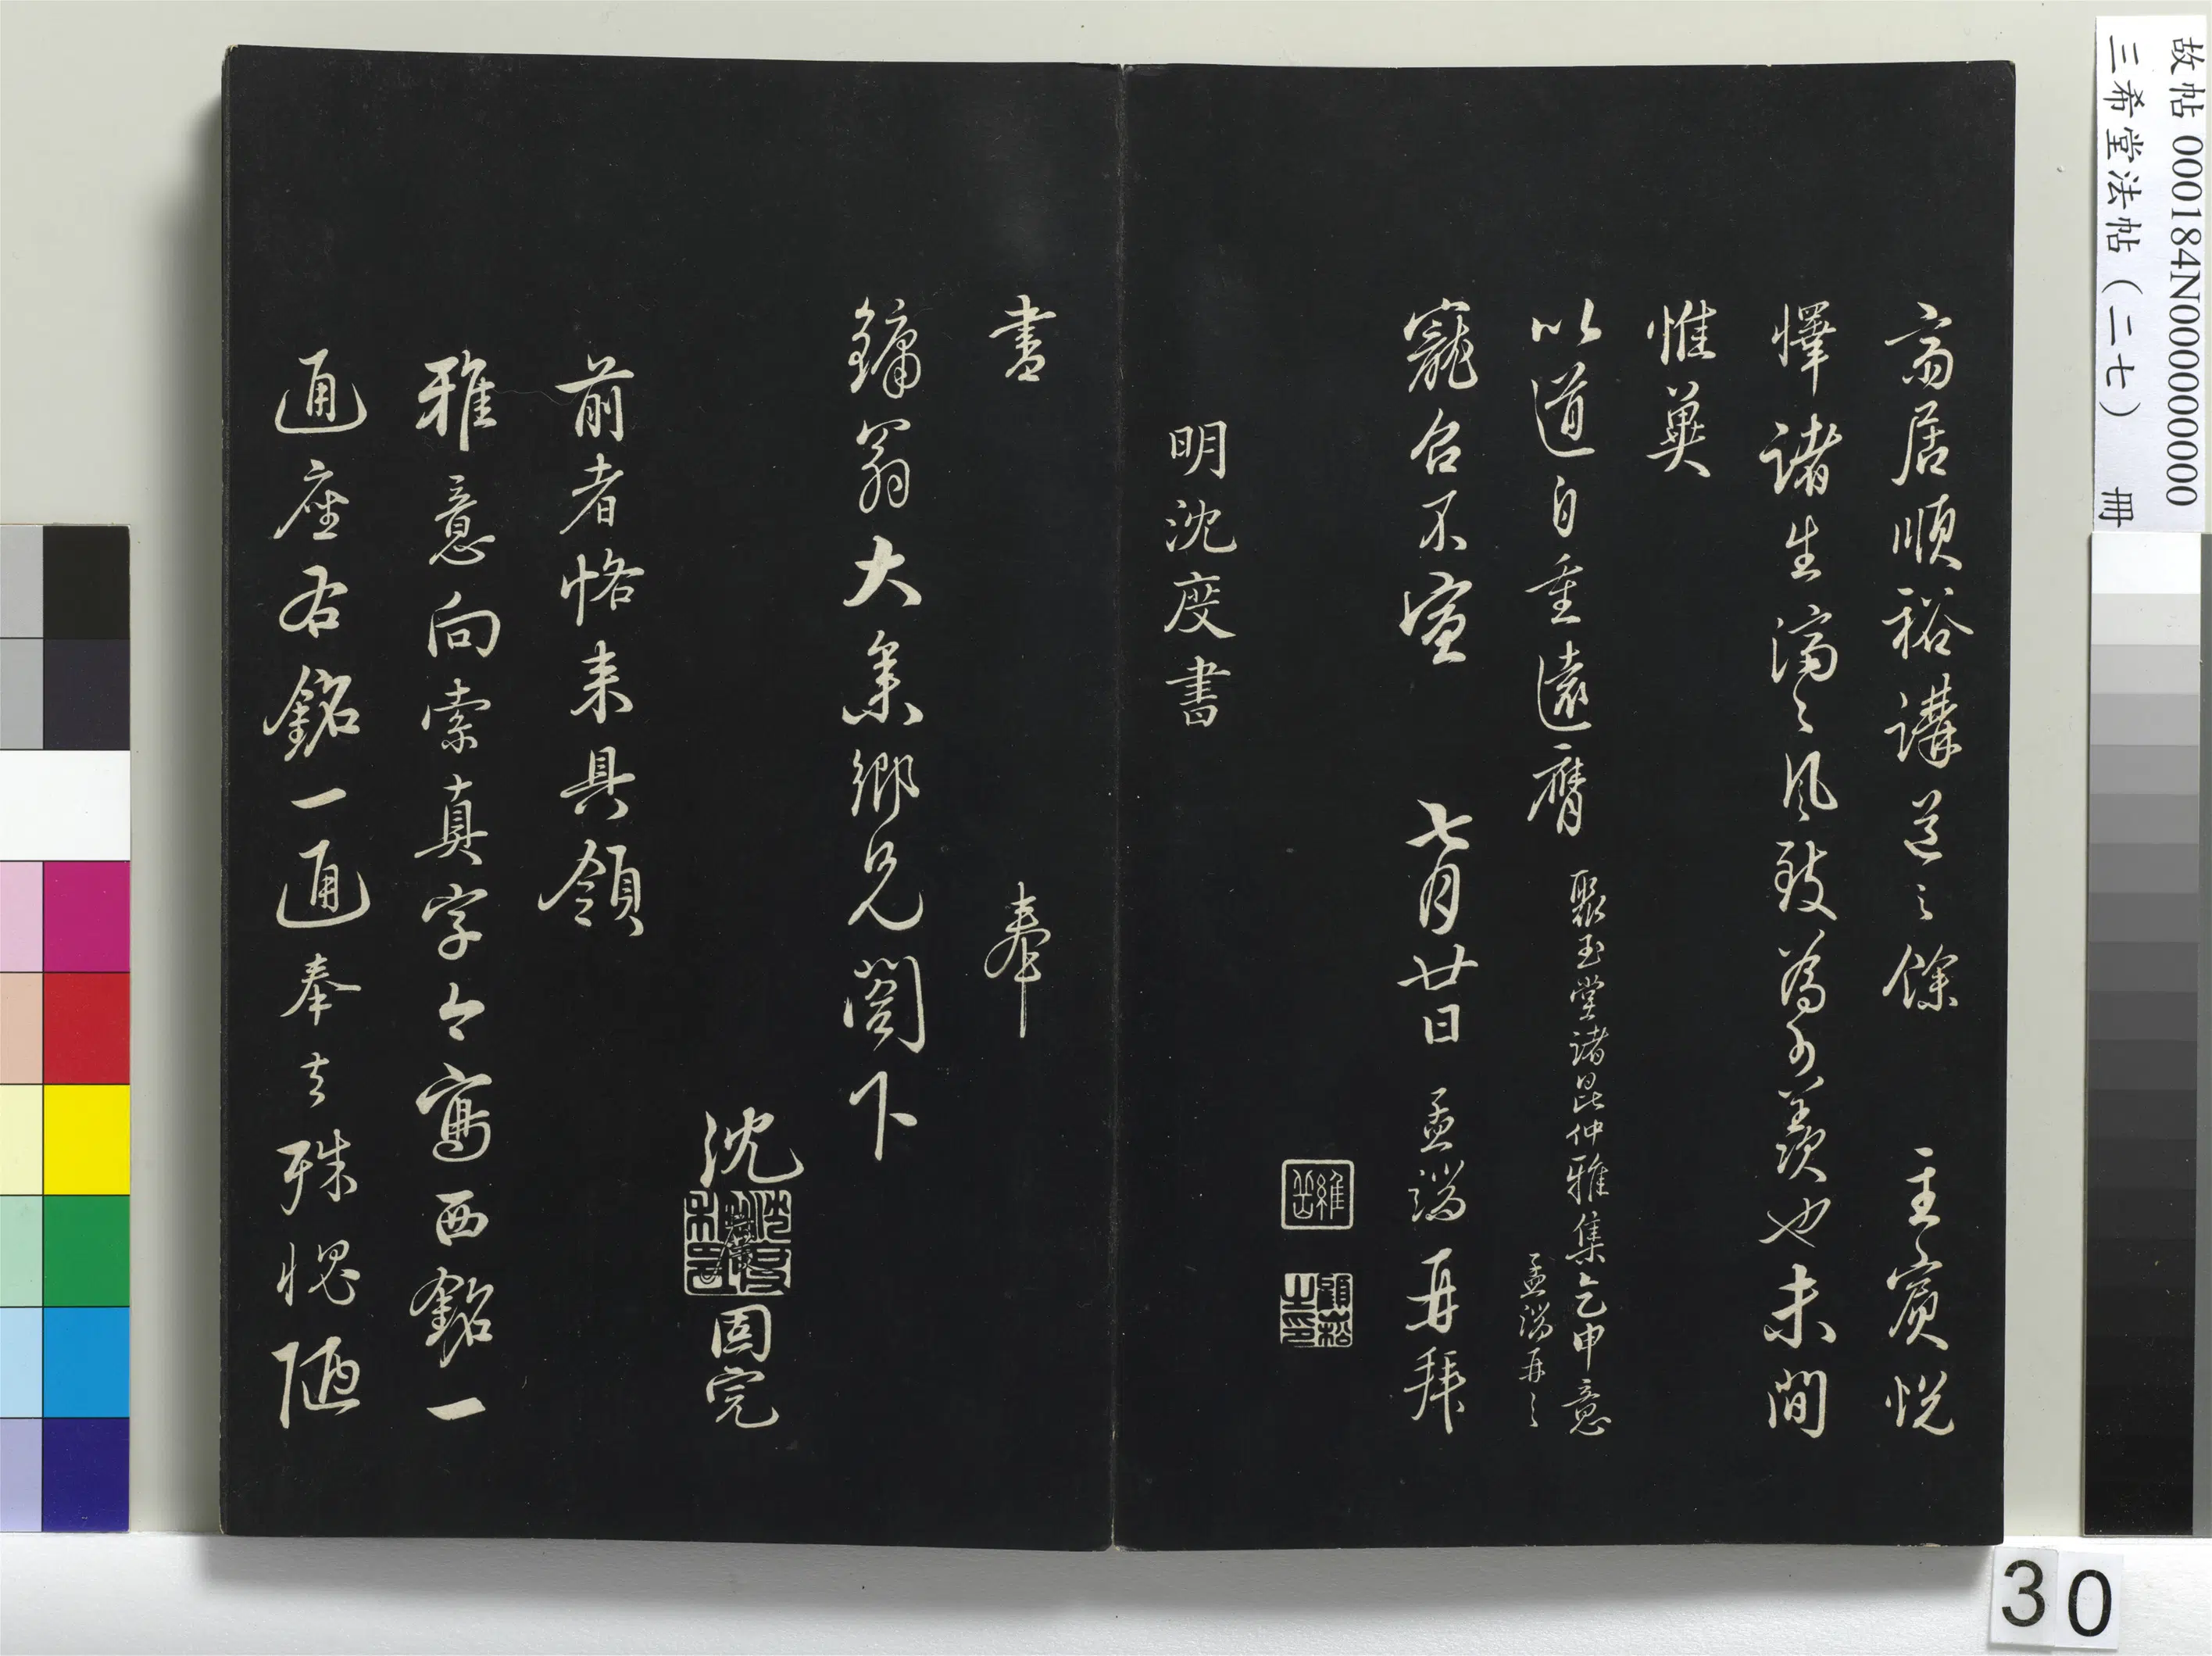 斋居順裕講道之餘 主賓悦
懌諸生濟〻風致為可羨也未間
惟冀
以道自重遠膺
聚玉堂諸昆仲雅集乞申意
孟端再〻
寵召不宣 七月廿日 孟端再拜
明沈度書
書 奉
鏞翁大集鄉兄閣下
沈
固完
前者恪来具領
雅意向索真字今寫西銘一
通座右銘一通奉去殊愧陋
故帖 000184N000000000
三希堂法帖(二七) 冊
30